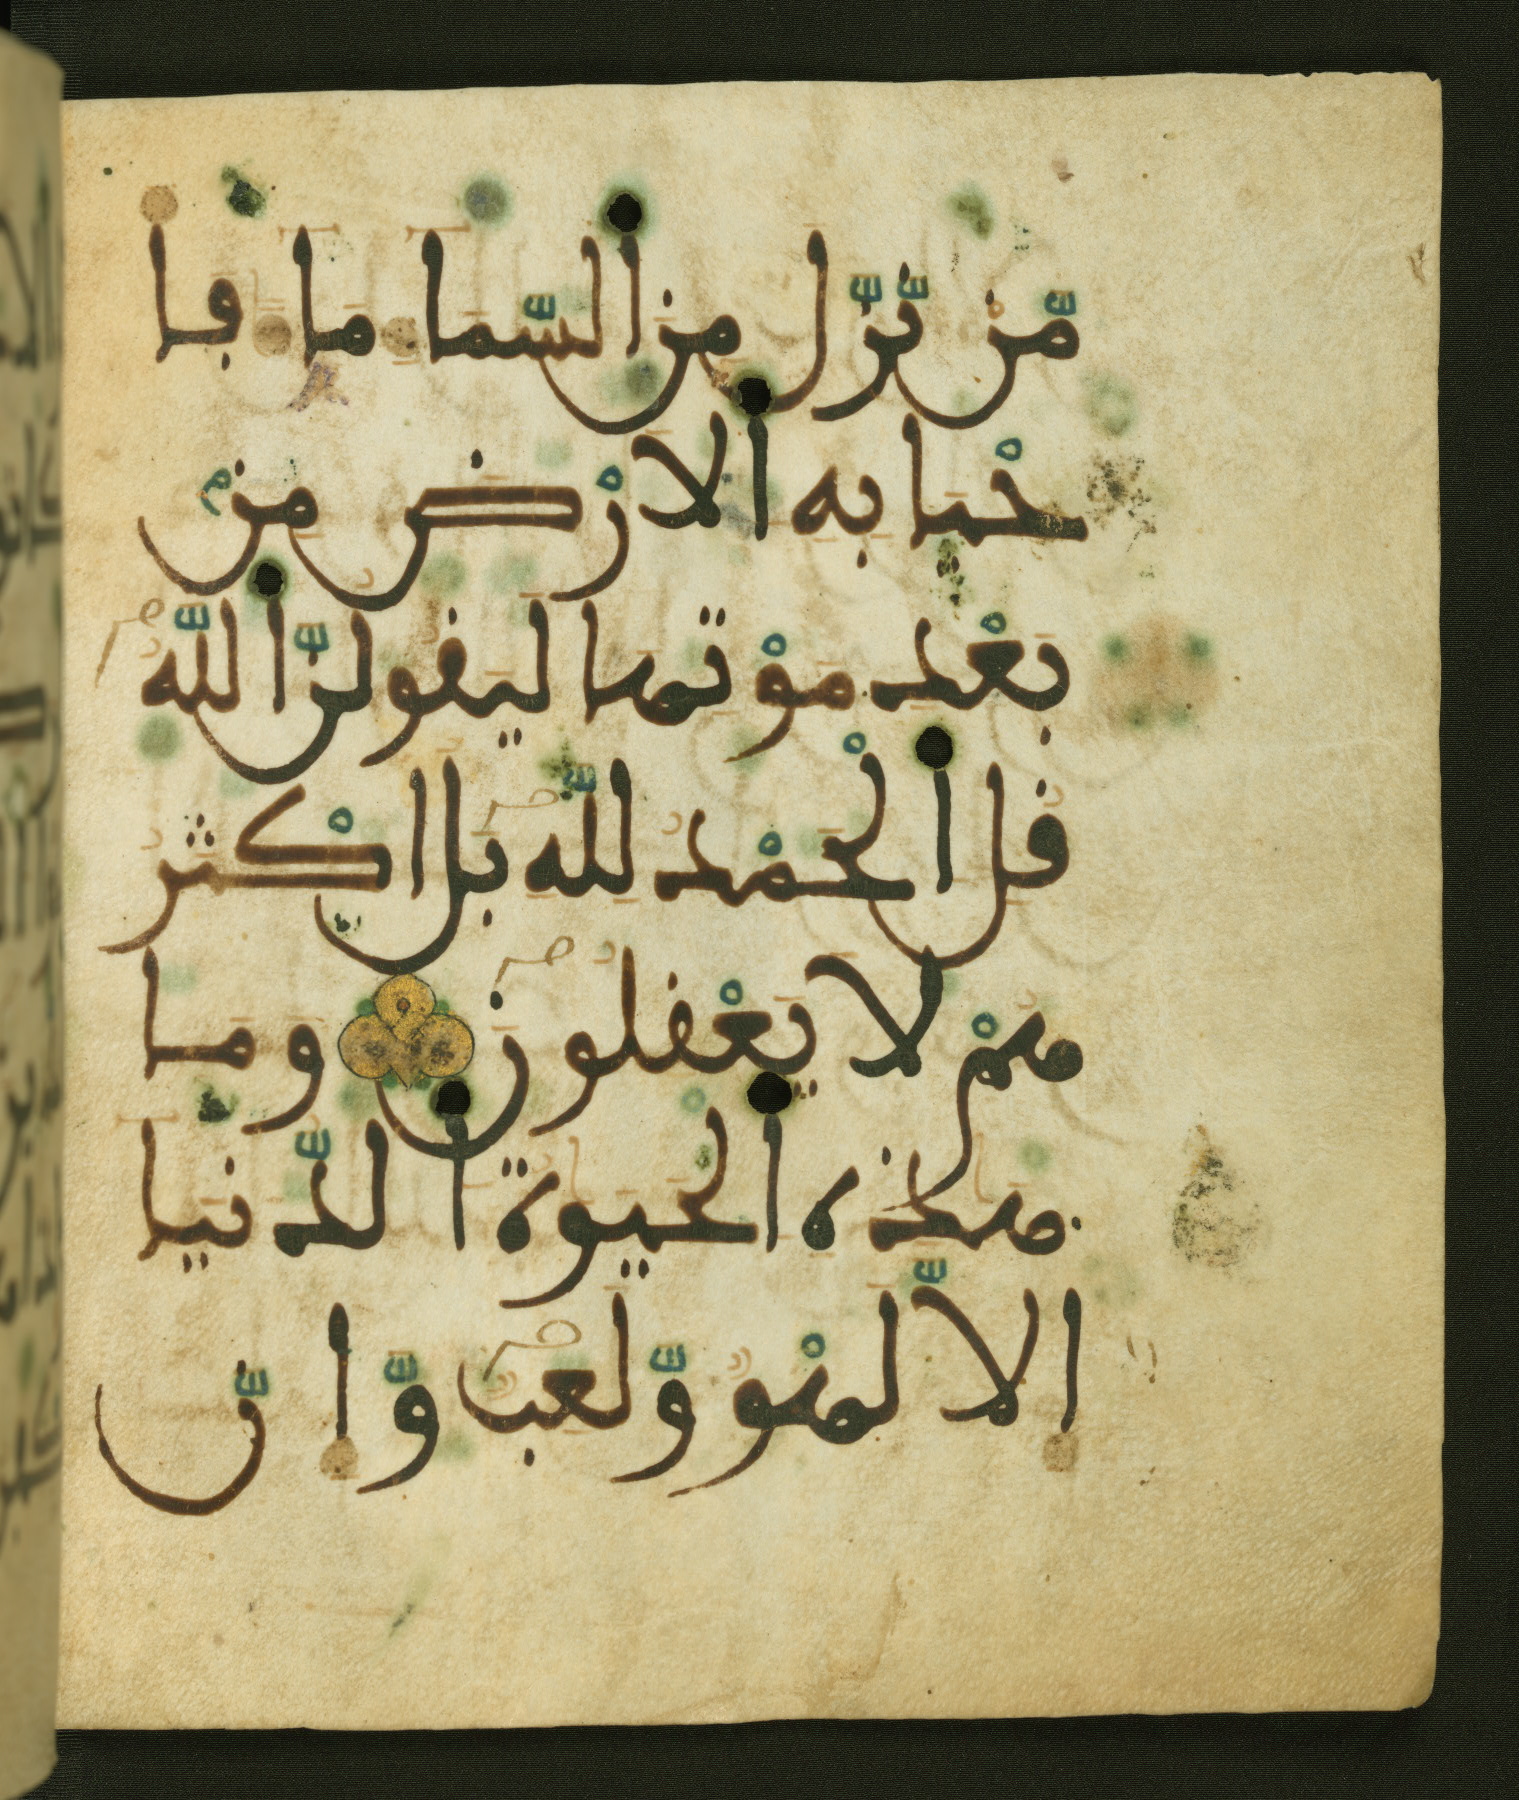 مّنْ نّزّل من السّما ما فا
حْيا به الارْض من
بعْد موْتها ليقولنّ اللّه
قل الحْمْد للّه بل اكْثر
همْ لا يعْقلون وما
هذه الحيوة الدّنيا
الّا لهْو وّلعب وّانّ